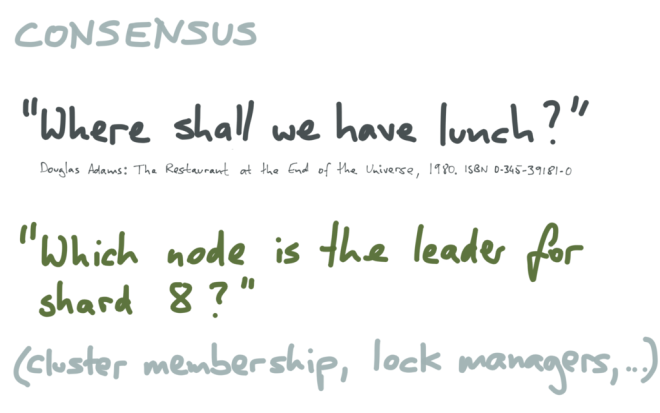 CONSENSUS
"Where shall we have lunch?"
Douglas Adams: The Restaurant at the End of the Universe, 1980. ISBN 0-345-39181-0
"Which node is the leader for
shard 8?"
(cluster membership, lock managers,...)